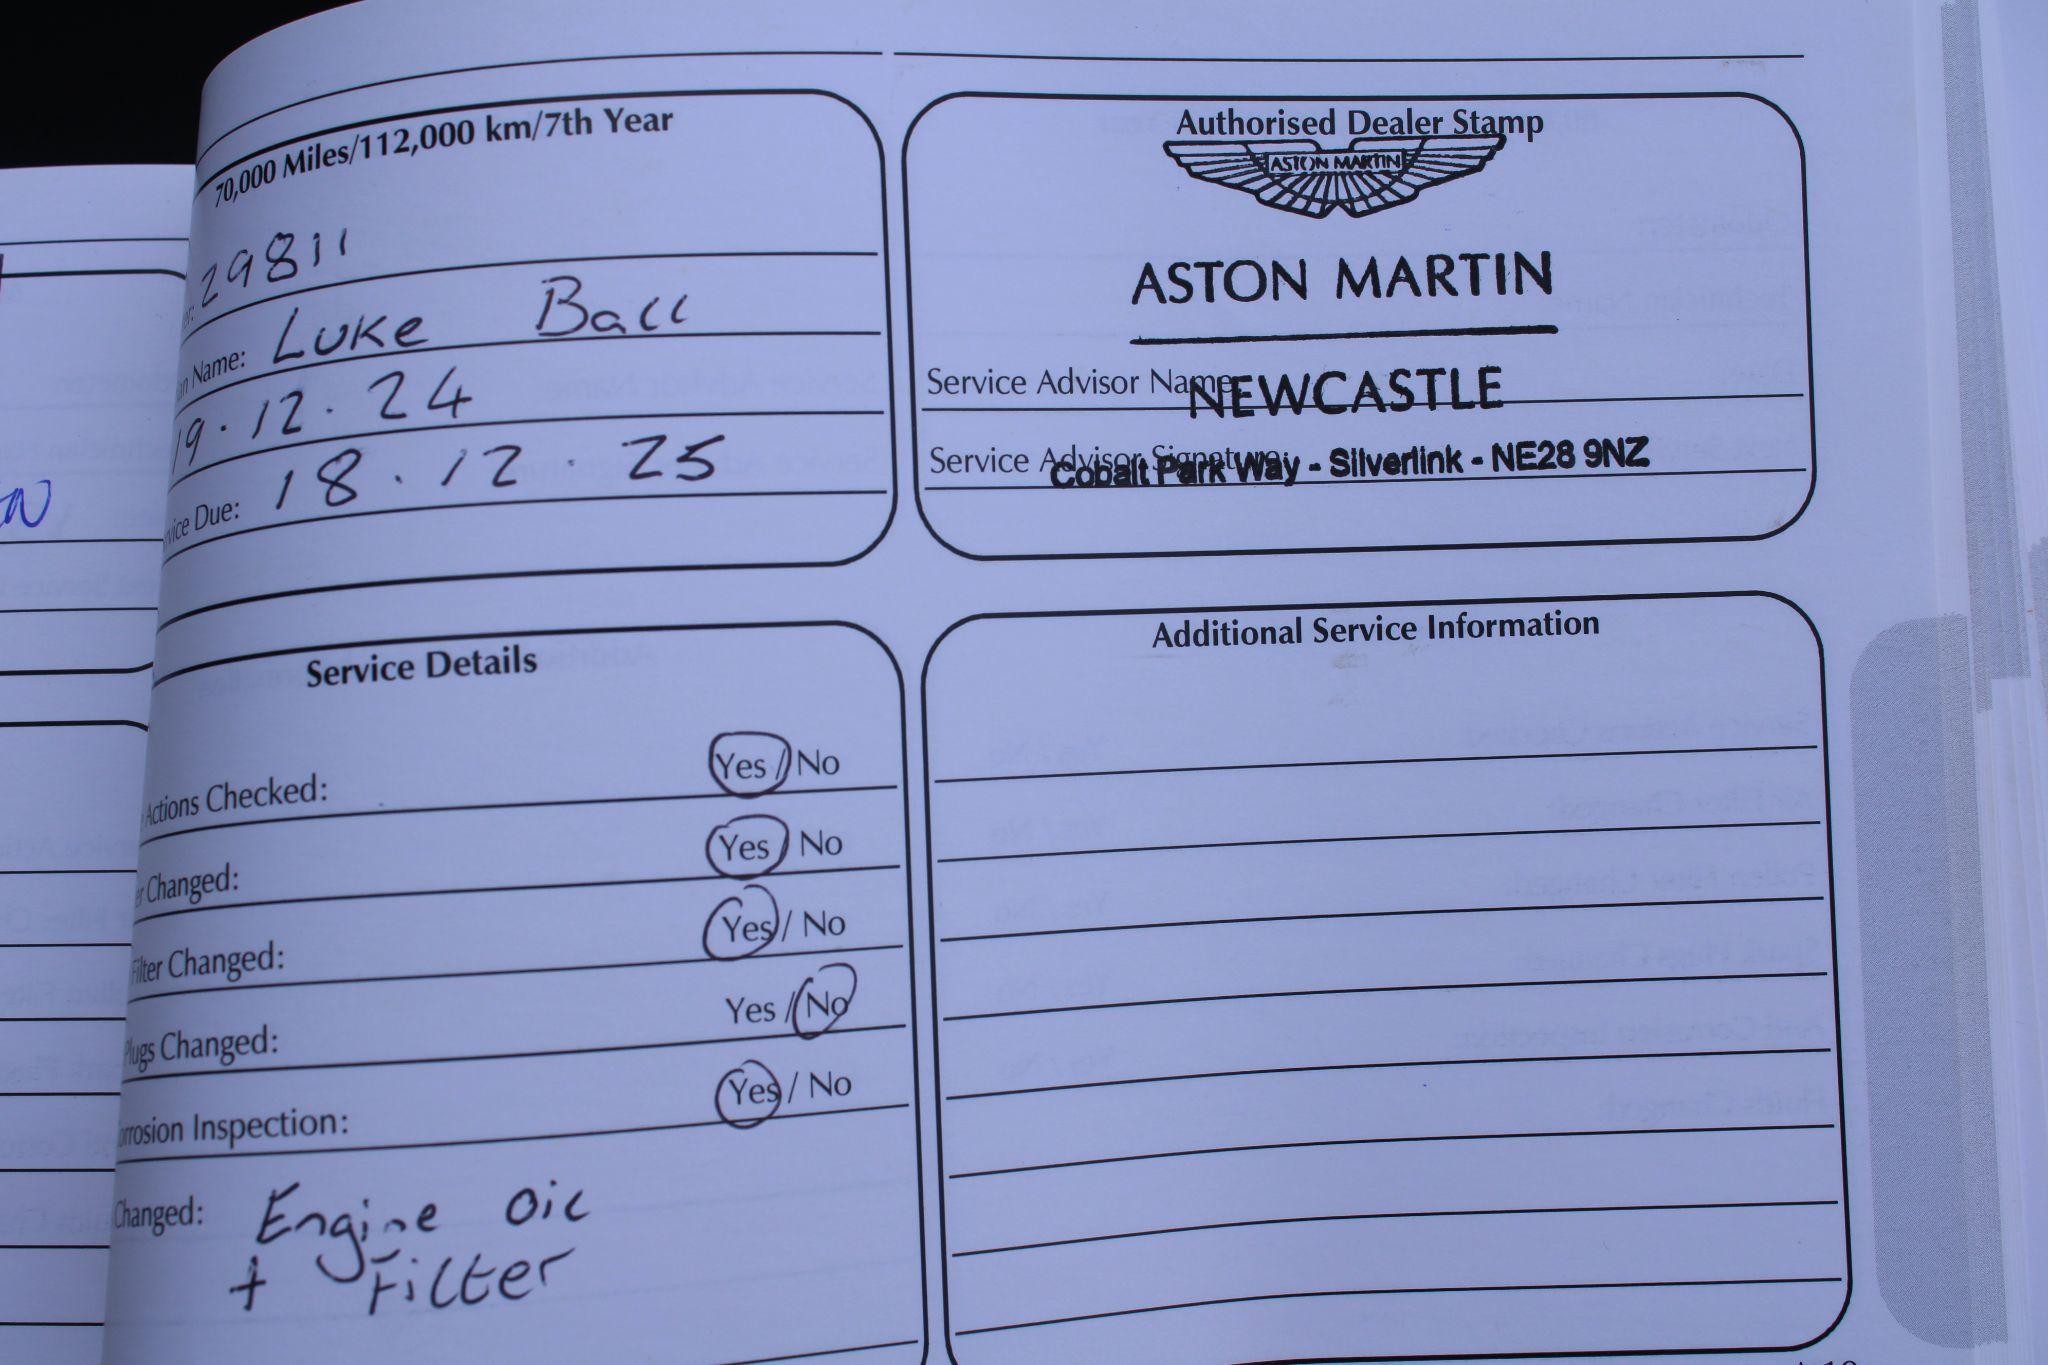 70,000 Miles/112,000 km/7th Year
er: 29811
an Name: Luke Ball
19.12.24
rvice Due: 18.12.25
Authorised Dealer Stamp
ASTON MARTIN
ASTON MARTIN
Service Advisor Name:
NEWCASTLE
Service Advisor Signature:
Cobalt Park Way - Silverlink - NE28 9NZ
Service Details
Actions Checked: Yes / No
er Changed: Yes / No
Filter Changed: Yes / No
lugs Changed: Yes / No
rrosion Inspection: Yes / No
Changed: Engine Oil
+ Filter
Additional Service Information